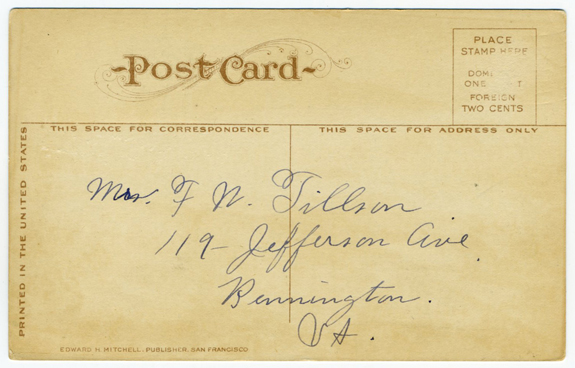 Post Card
PLACE
STAMP HERE
ONE
FOREIGN
TWO CENTS
THIS SPACE FOR CORRESPONDENCE
THIS SPACE FOR ADDRESS ONLY
PRINTED IN THE UNITED STATES
Mrs. F N. Tillson
119- Jefferson Ave.
Bennington.
Vt.
EDWARD H. MITCHELL, PUBLISHER, SAN FRANCISCO